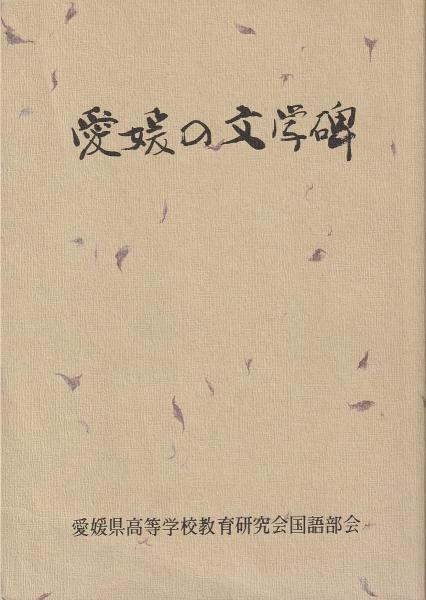 愛媛の文学碑
愛媛県高等学校教育研究会国語部会